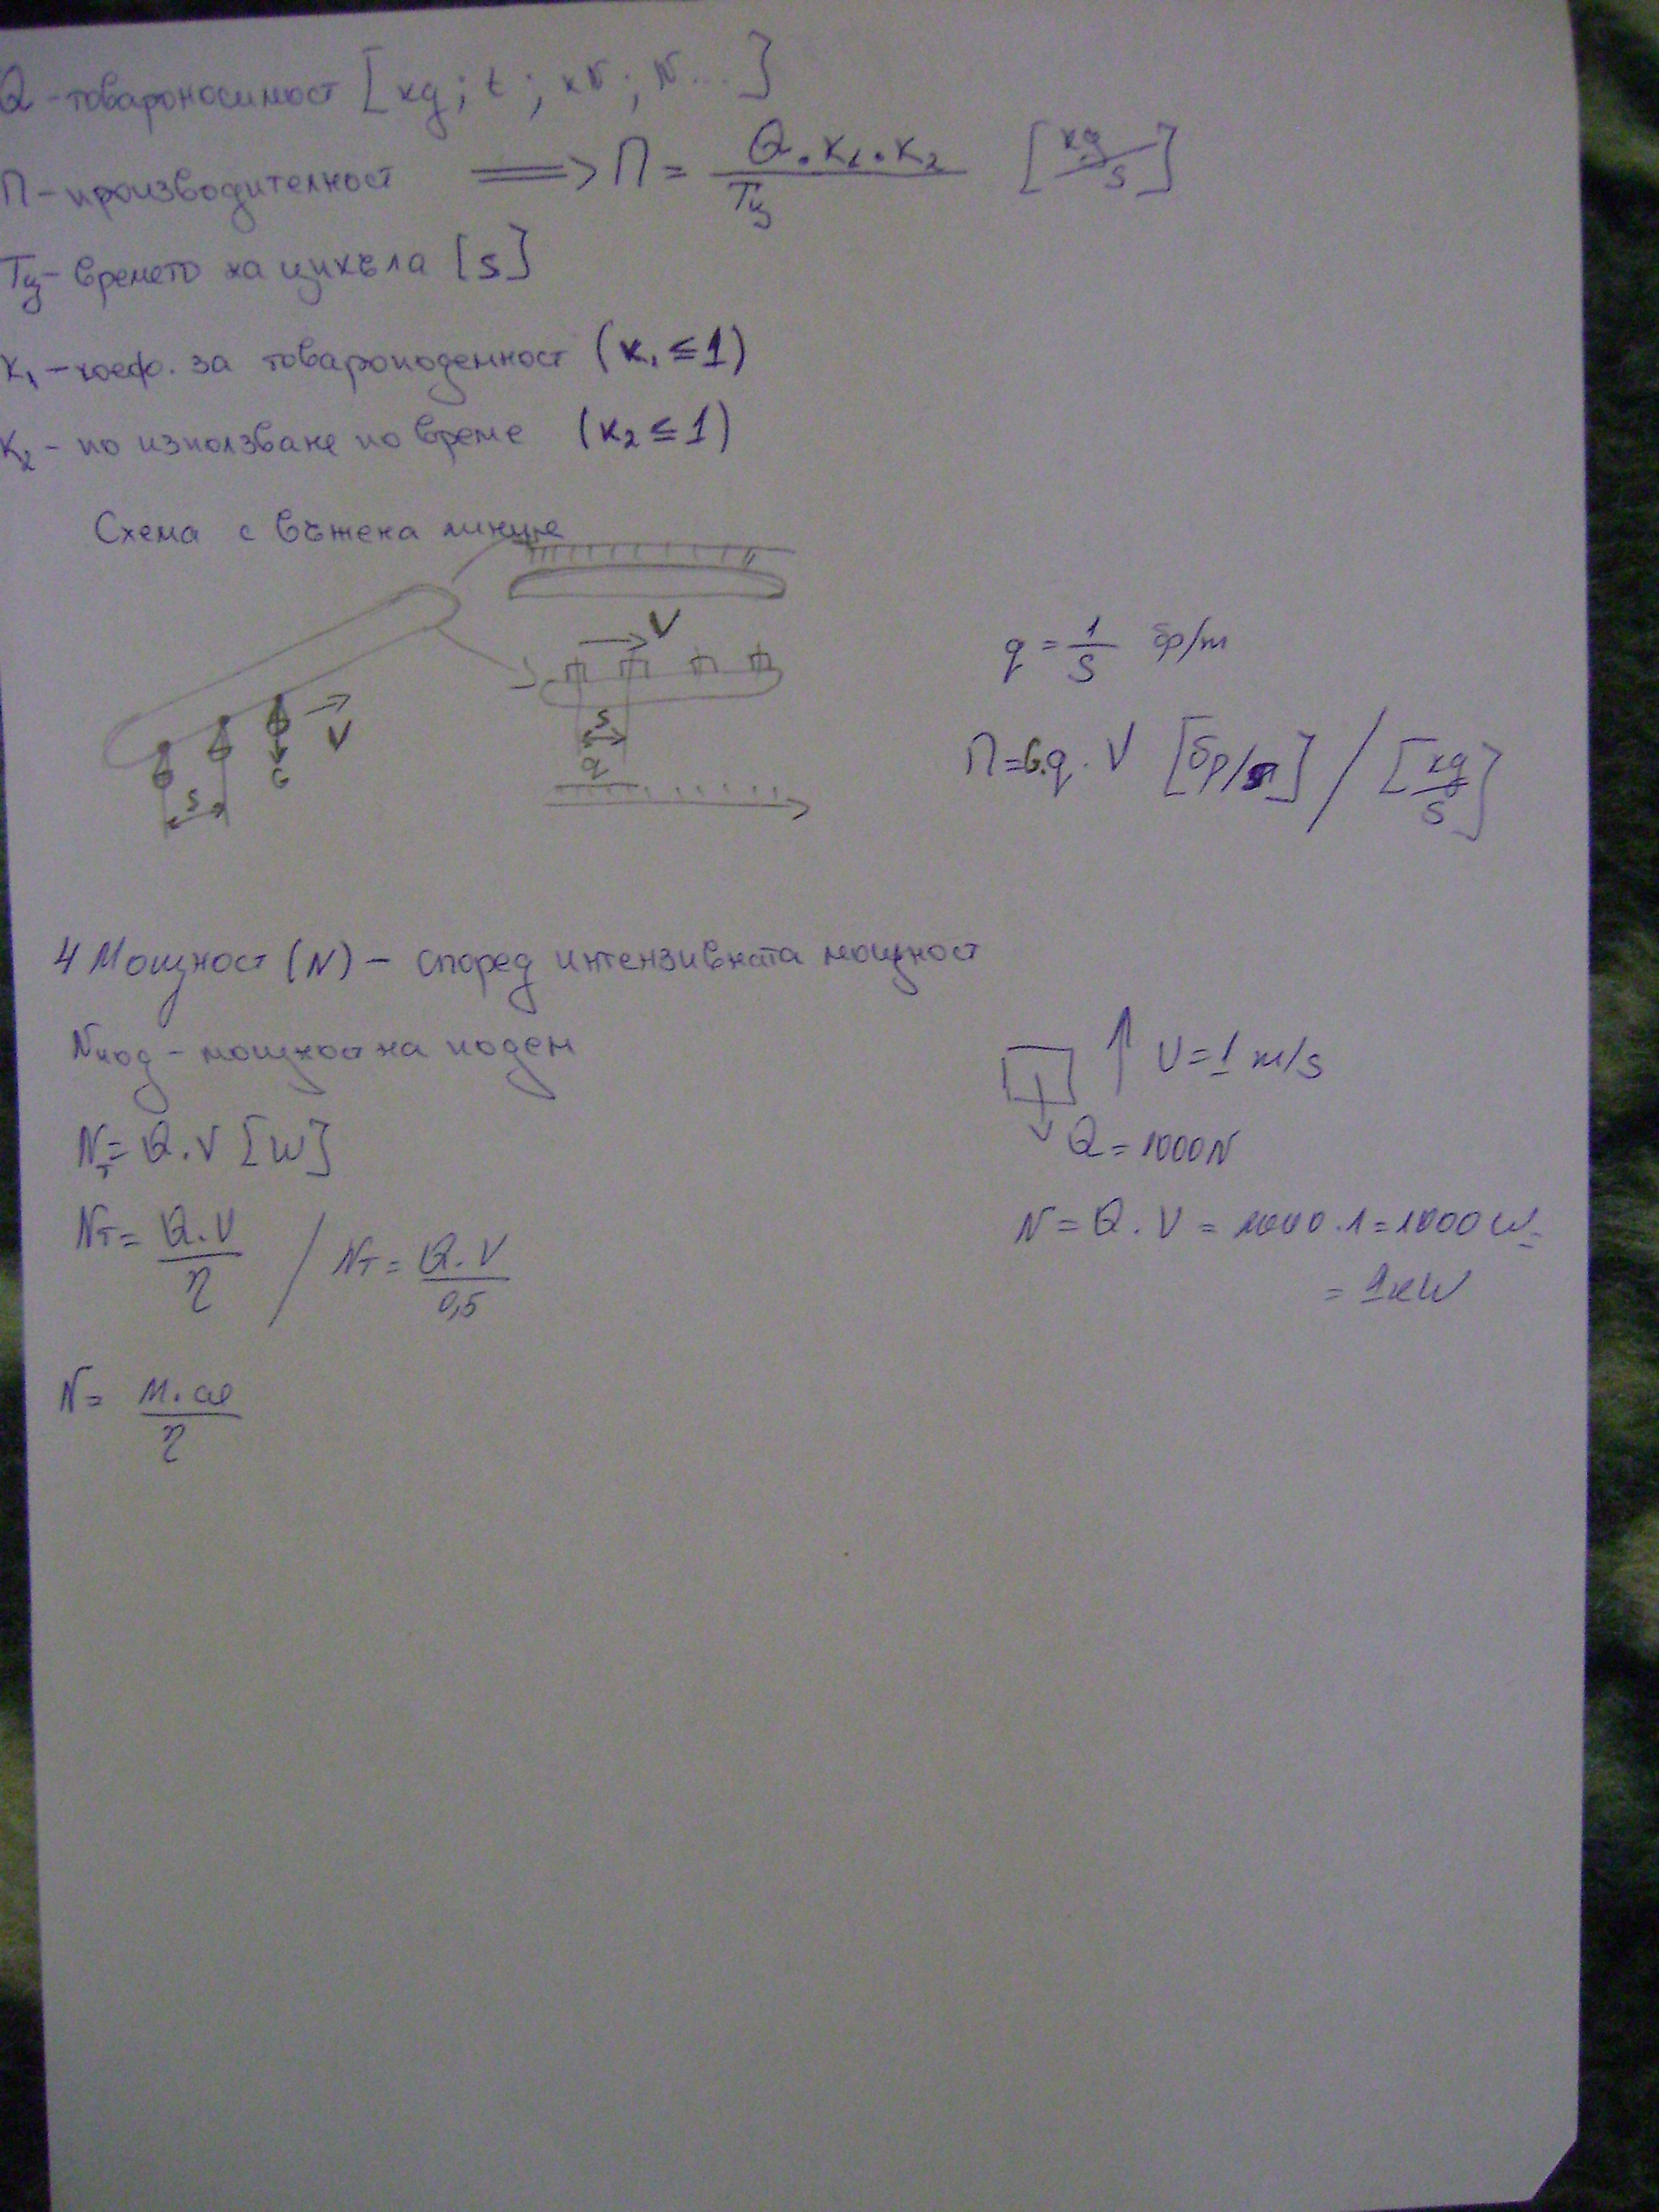 Q - товароносимост [kg; t; kN; N...]
П - производителност ⟹ П = Q.к₁.к₂ / Тц [kg/s]
Тц - времето на цикъла [s]
к₁ - коеф. за товароподемност (к₁ ≤ 1)
к₂ - по използване по време (к₂ ≤ 1)
Схема с въжена линия
V
q = 1/s бр/m
V
s
G
s
q
П = G.q.V [бр/s] / [kg/s]
4 Мощност (N) - според интензивната мощност
Nпод - мощност на подем
V = 1 m/s
Nт = Q.V [W]
Q = 1000N
Nт = Q.V / η / Nт = Q.V / 0,5
N = Q.V = 1000.1 = 1000W =
= 1kW
N = M.ω / η